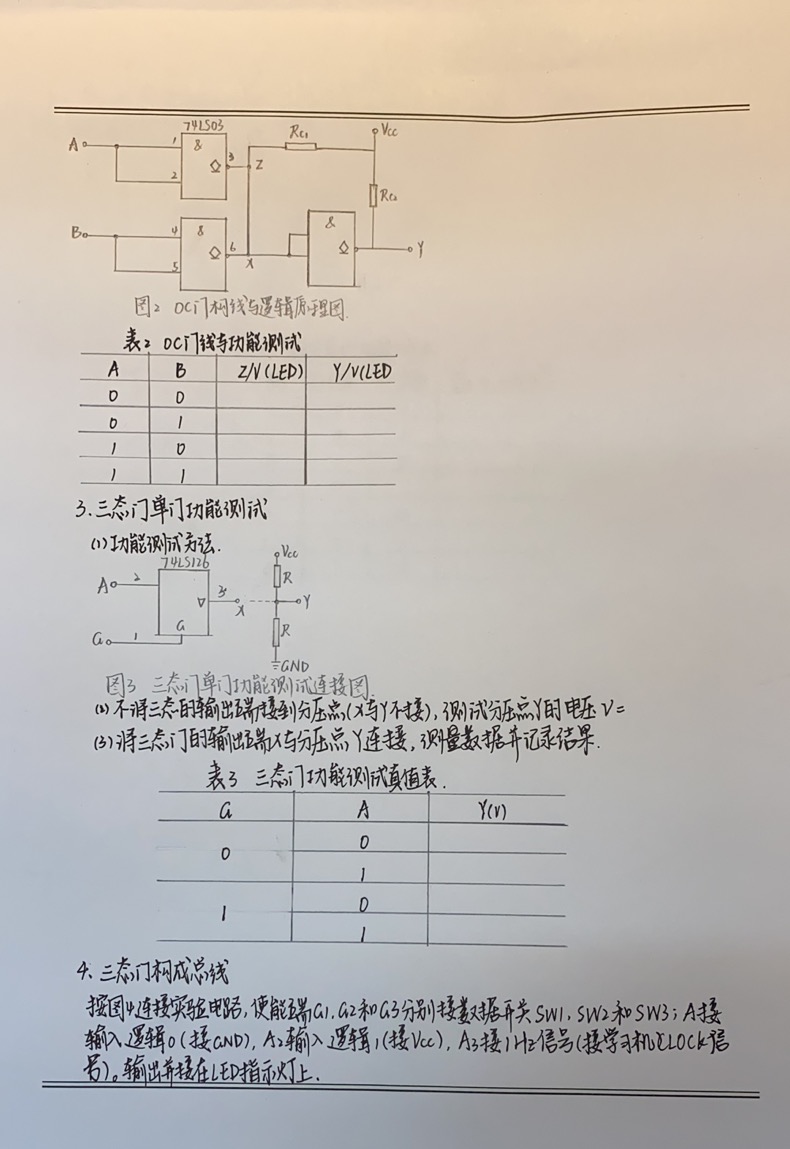 74LS03
A 1 & 3 Rc1 Vcc
2 Z Rc2
B 4 & 6 & Y
5 X
图2 OC门构线与逻辑原理图.
表2 OC门线与功能测试
A B Z/V(LED) Y/V(LED
0 0
0 1
1 0
1 1
3.三态门单门功能测试
(1)功能测试方法.
74LS126 Vcc
A 2 R
3 X Y
G 1 G R
GND
图3 三态门单门功能测试连接图.
(2)不将三态的输出端接到分压点(X与Y不接),测试分压点Y的电压V=
(3)将三态门的输出端X与分压点Y连接,测量数据并记录结果.
表3 三态门功能测试真值表.
G A Y(V)
0 0
1
1 0
1
4.三态门构成总线
按图4连接实验电路,使能端G1.G2和G3分别接数据开关SW1,SW2和SW3;A接
输入逻辑0(接GND),A2输入逻辑1(接Vcc),A3接1Hz信号(接学习机CLOCK信
号)。输出并接在LED指示灯上.